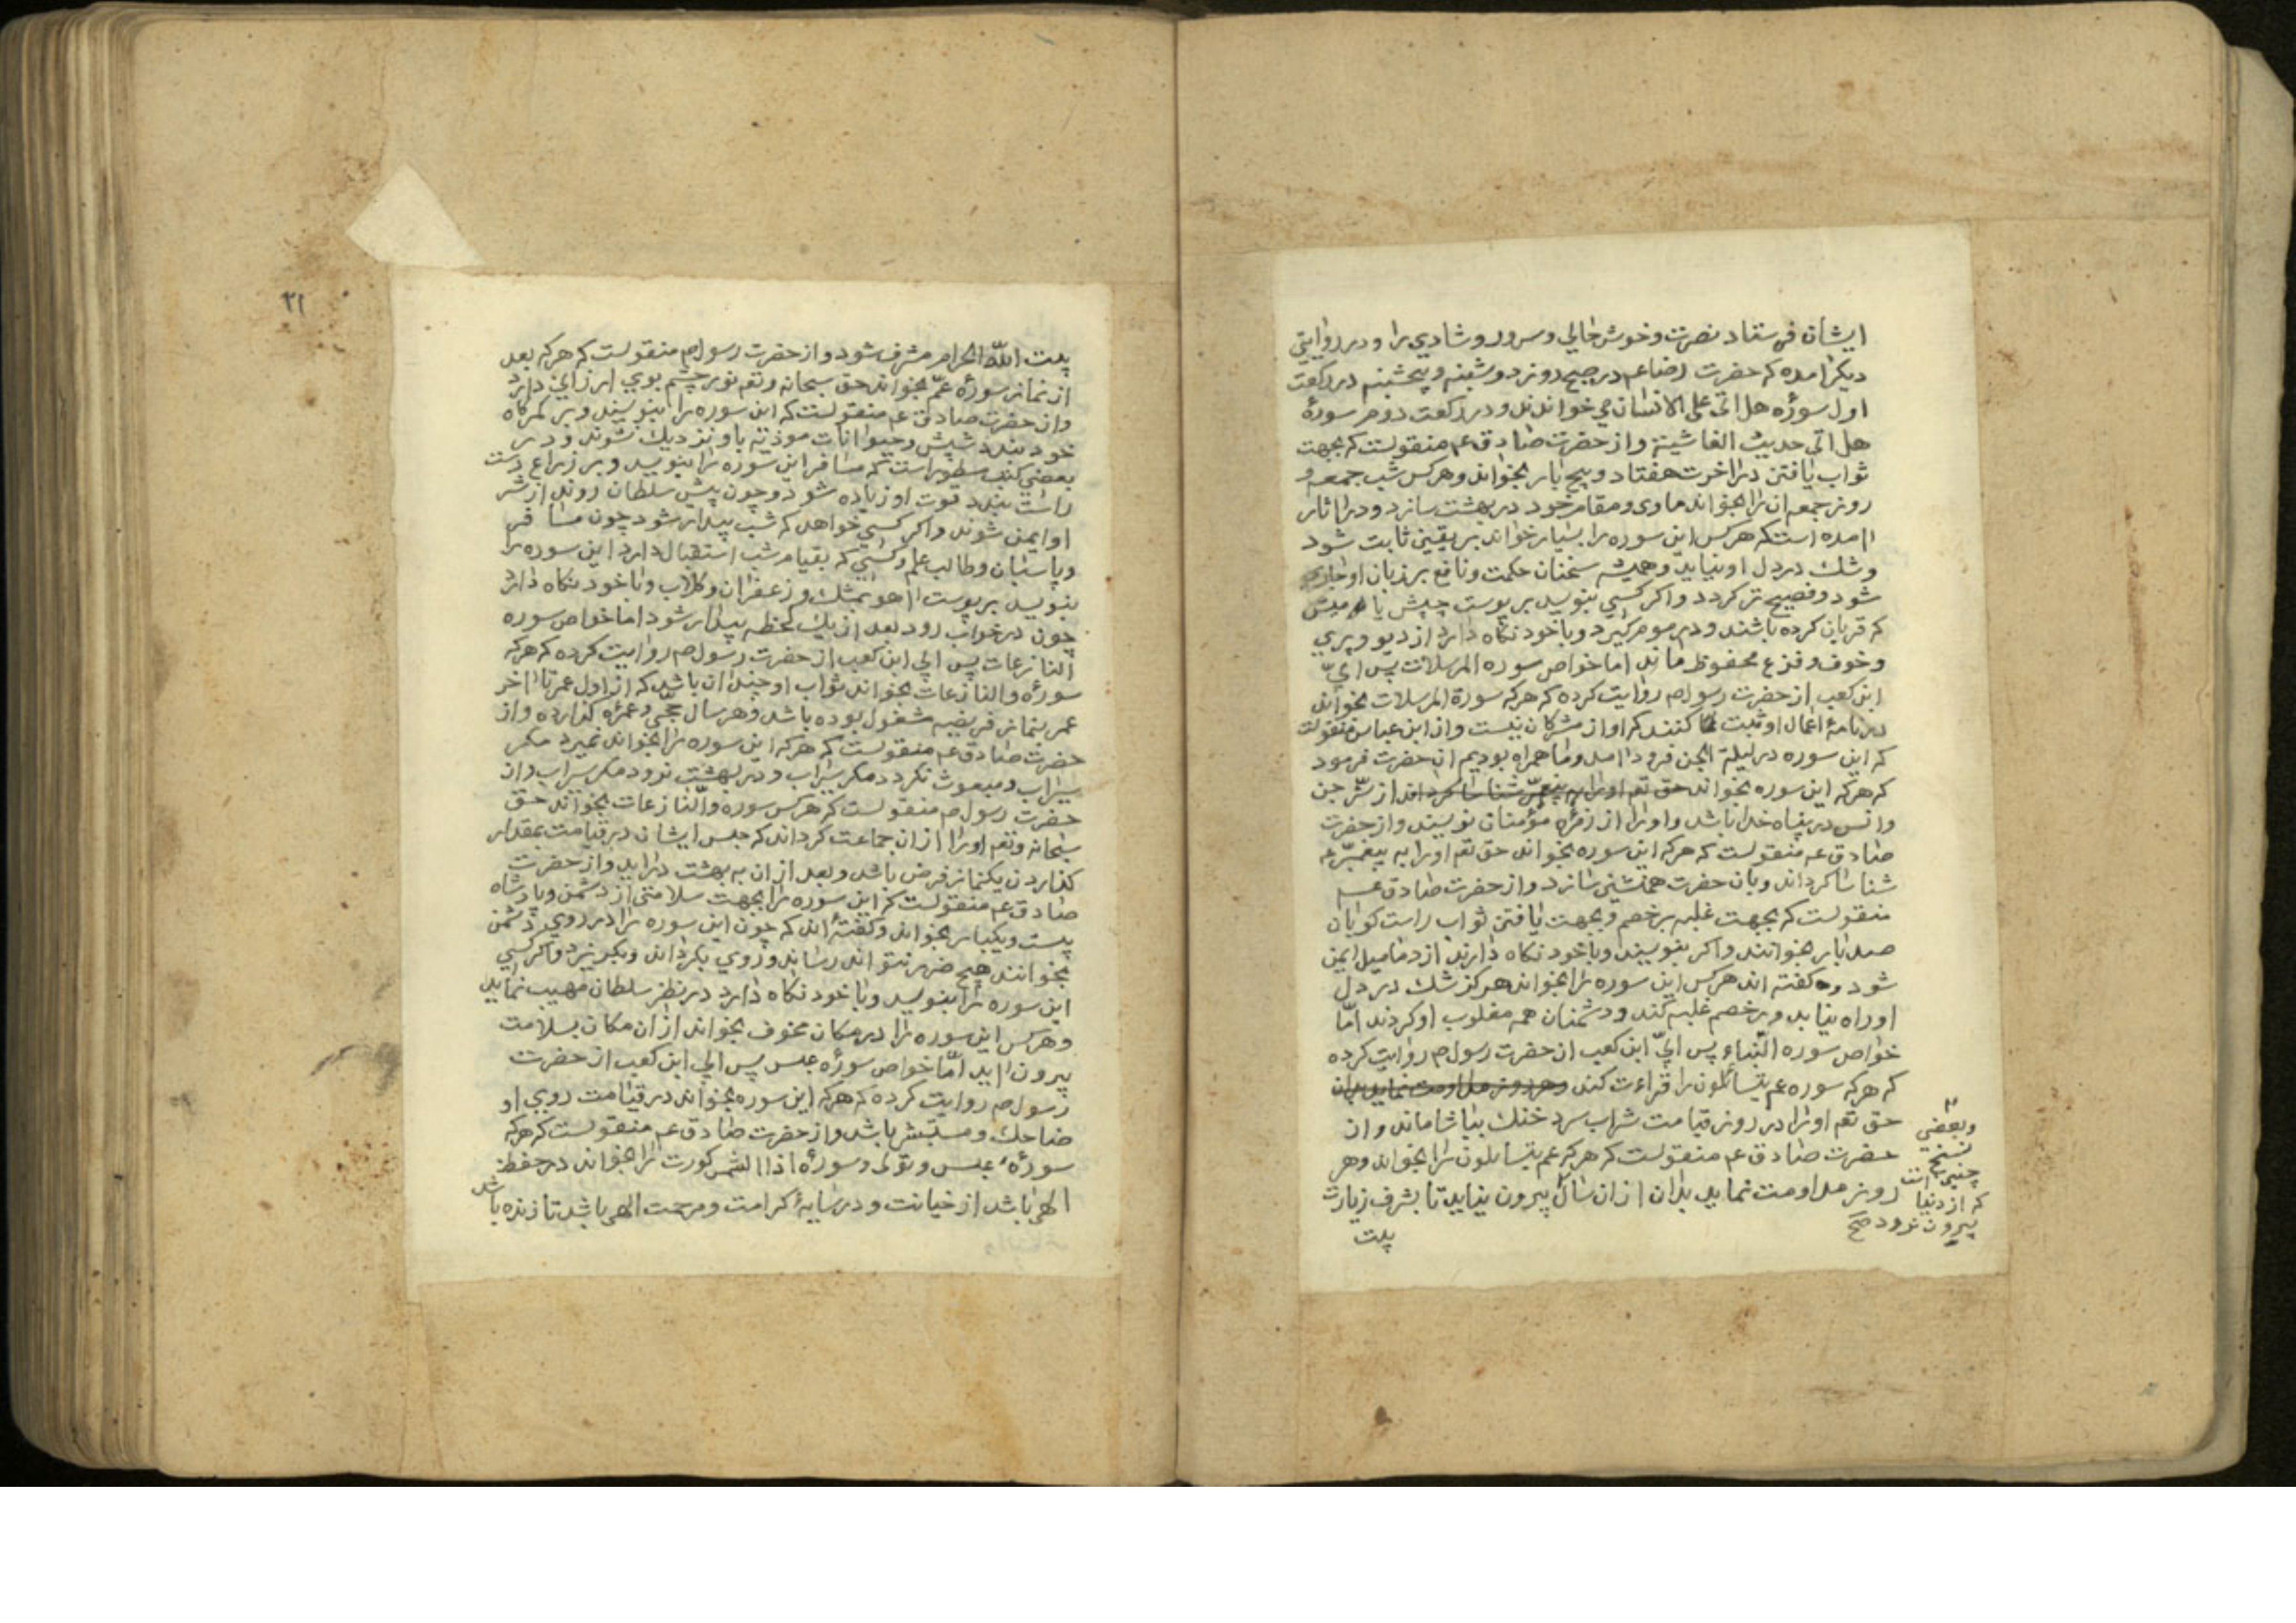 ایشان فرستاد نصرت و خوش حالي و سرور و شادي را و در روایتي
دیکر امده که حضرت رضا عم در صبح روز دوشنبه و پنجشنبه در رکعت
اول سورۀ هل اتی علی الانسان مي خواندند و در رکعت دوم سورۀ
هل اتی حدیث الغاشیة و از حضرت صادق عم منقولست که بجهت
ثواب یافتن در اخرت هفتاد و پنج بار بخواند و هر کس شب جمعه و
روز جمعه ان را بخواند ماوی و مقام خود در بهشت سازد و در اثار
امده است که هر کس این سوره را بسیار خواند بر یقین ثابت شود
و شك در دل او نیاید و همیشه سخنان حکمت و نافع بر زبان او جاري
شود و فصیح تر کردد و اکر کسي بنویسد بر پوست چپش یا میش
که قربان کرده باشند و در موم کیرد و با خود نکاه دارد از دیو و پري
و خوف و فزع محفوظ ماند اما خواص سوره المرسلات پس ابيّ
ابن کعب از حضرت رسول ص روایت کرده که هر که سورة المرسلات بخواند
در نامۀ اعمال او ثبت کنند که او از مشرکان نیست و از ابن عباس منقولست
که این سوره در لیلة الجن فرود امد و ما همراه بودیم ان حضرت فرمود
که هر که این سوره بخواند حق تعم او را به پیغمبر شناسا کرداند از شر جن
و انس در پناه خدا باشد و او را از زمرۀ مؤمنان نویسند و از حضرت
صادق عم منقولست که هر که این سوره بخواند حق تعم او را به پیغمبر عم
شناسا کرداند و بان حضرت همنشني سازد و از حضرت صادق عم
منقولست که بجهت غلبه بر خصم و بجهت یافتن ثواب راست کویان
صد بار بخوانند و اکر بنویسند و با خود نکاه دارند از دمامیل ایمن
شود و کفته اند هر کس این سوره را بخواند هرکز شك در دل
او راه نیابد و بر خصم غلبه کند و دشمنان همه مغلوب او کردند امّا
خواص سوره النّباء پس ابيّ ابن کعب از حضرت رسول ص روایت کرده
که هر که سوره عم یتسائلون را قراءت کند و هر روز مداومت نماید بدان
حق تعم او را در روز قیامت شراب سرد خنك بیاشاماند و از
حضرت صادق عم منقولست که هر که عم یتسایلون را بخواند و هر
روز مداومت نماید بدان از ان سال بیرون نیاید تا بشرف زیارت
بیت
و بعضي
نسخ
چنین است
که از دنیا
بیرون نرود صح
۲۱
بیت اللّه الحرام مشرف شود و از حضرت رسول ص منقولست که هر که بعد
از نماز سورۀ عمّ بخواند حق سبحانه و تعم نور چشم بوي ارزاني دارد
و از حضرت صادق عم منقولست که این سوره را بنویسند و بر کمرکاه
خود بندد شپش و حیوانات موذیه باو نزدیك نشوند و در
بعضي کتب مسطور است که مسافر این سوره را بنویسد و بر زراع دست
راست بندد قوت او زیاده شود و چون پیش سلطان روند از شر
او ایمن شوند و اکر کسي خواهد که شب بیدار شود چون مسافر
و پاسبان و طالب علم و کسي که بقیام شب استقبال دارد این سوره را
بنویسد بر پوست اهو بمشك و زعفران و کلاب و با خود نکاه دارد
چون در خواب رود بعد از یك لحظه بیدار شود اما خواص سوره
النازعات پس ابي ابن کعب از حضرت رسول ص روایت کرده که هر که
سورۀ والنازعات بخواند ثواب او چندان باشد که از اول عمر تا اخر
عمر بنماز فریضه مشغول بوده باشد و هر سال حجي و عمره کذارده و از
حضرت صادق عم منقولست که هر که این سوره را بخواند نمیرد مکر
سیراب و مبعوث نکردد مکر سیراب و در بهشت نرود مکر سیراب و از
حضرت رسول ص منقولست که هر کس سوره والنازعات بخواند حق
سبحانه و تعم او را از ان جماعت کرداند که حبس ایشان در قیامت بمقدار
کذاردن یکنماز فرض باشد و بعد از ان به بهشت دراید و از حضرت
صادق عم منقولست که این سوره را بجهت سلامتی از دشمن و پادشاه
بیست و یکبار بخواند و کفته اند که چون این سوره را در روي دشمن
بخوانند هیچ ضرر نتواند رساند و روي بکرداند و بکریزد و اکر کسي
این سوره را بنویسد و با خود نکاه دارد در نظر سلطان مهیب نماید
و هر کس این سوره را در مکان مخوف بخواند از ان مکان بسلامت
بیرون اید امّا خواص سورۀ عبس پس ابي ابن کعب از حضرت
رسول ص روایت کرده که هر که این سوره بخواند در قیامت روي او
ضاحك و مستبشر باشد و از حضرت صادق عم منقولست که هر که
سورۀ عبس و تولی و سورۀ اذا الشمس کورت را بخواند در حفظ
الهی باشد از خیانت و در سایۀ کرامت و مرحمت الهی باشد تا زنده باشد